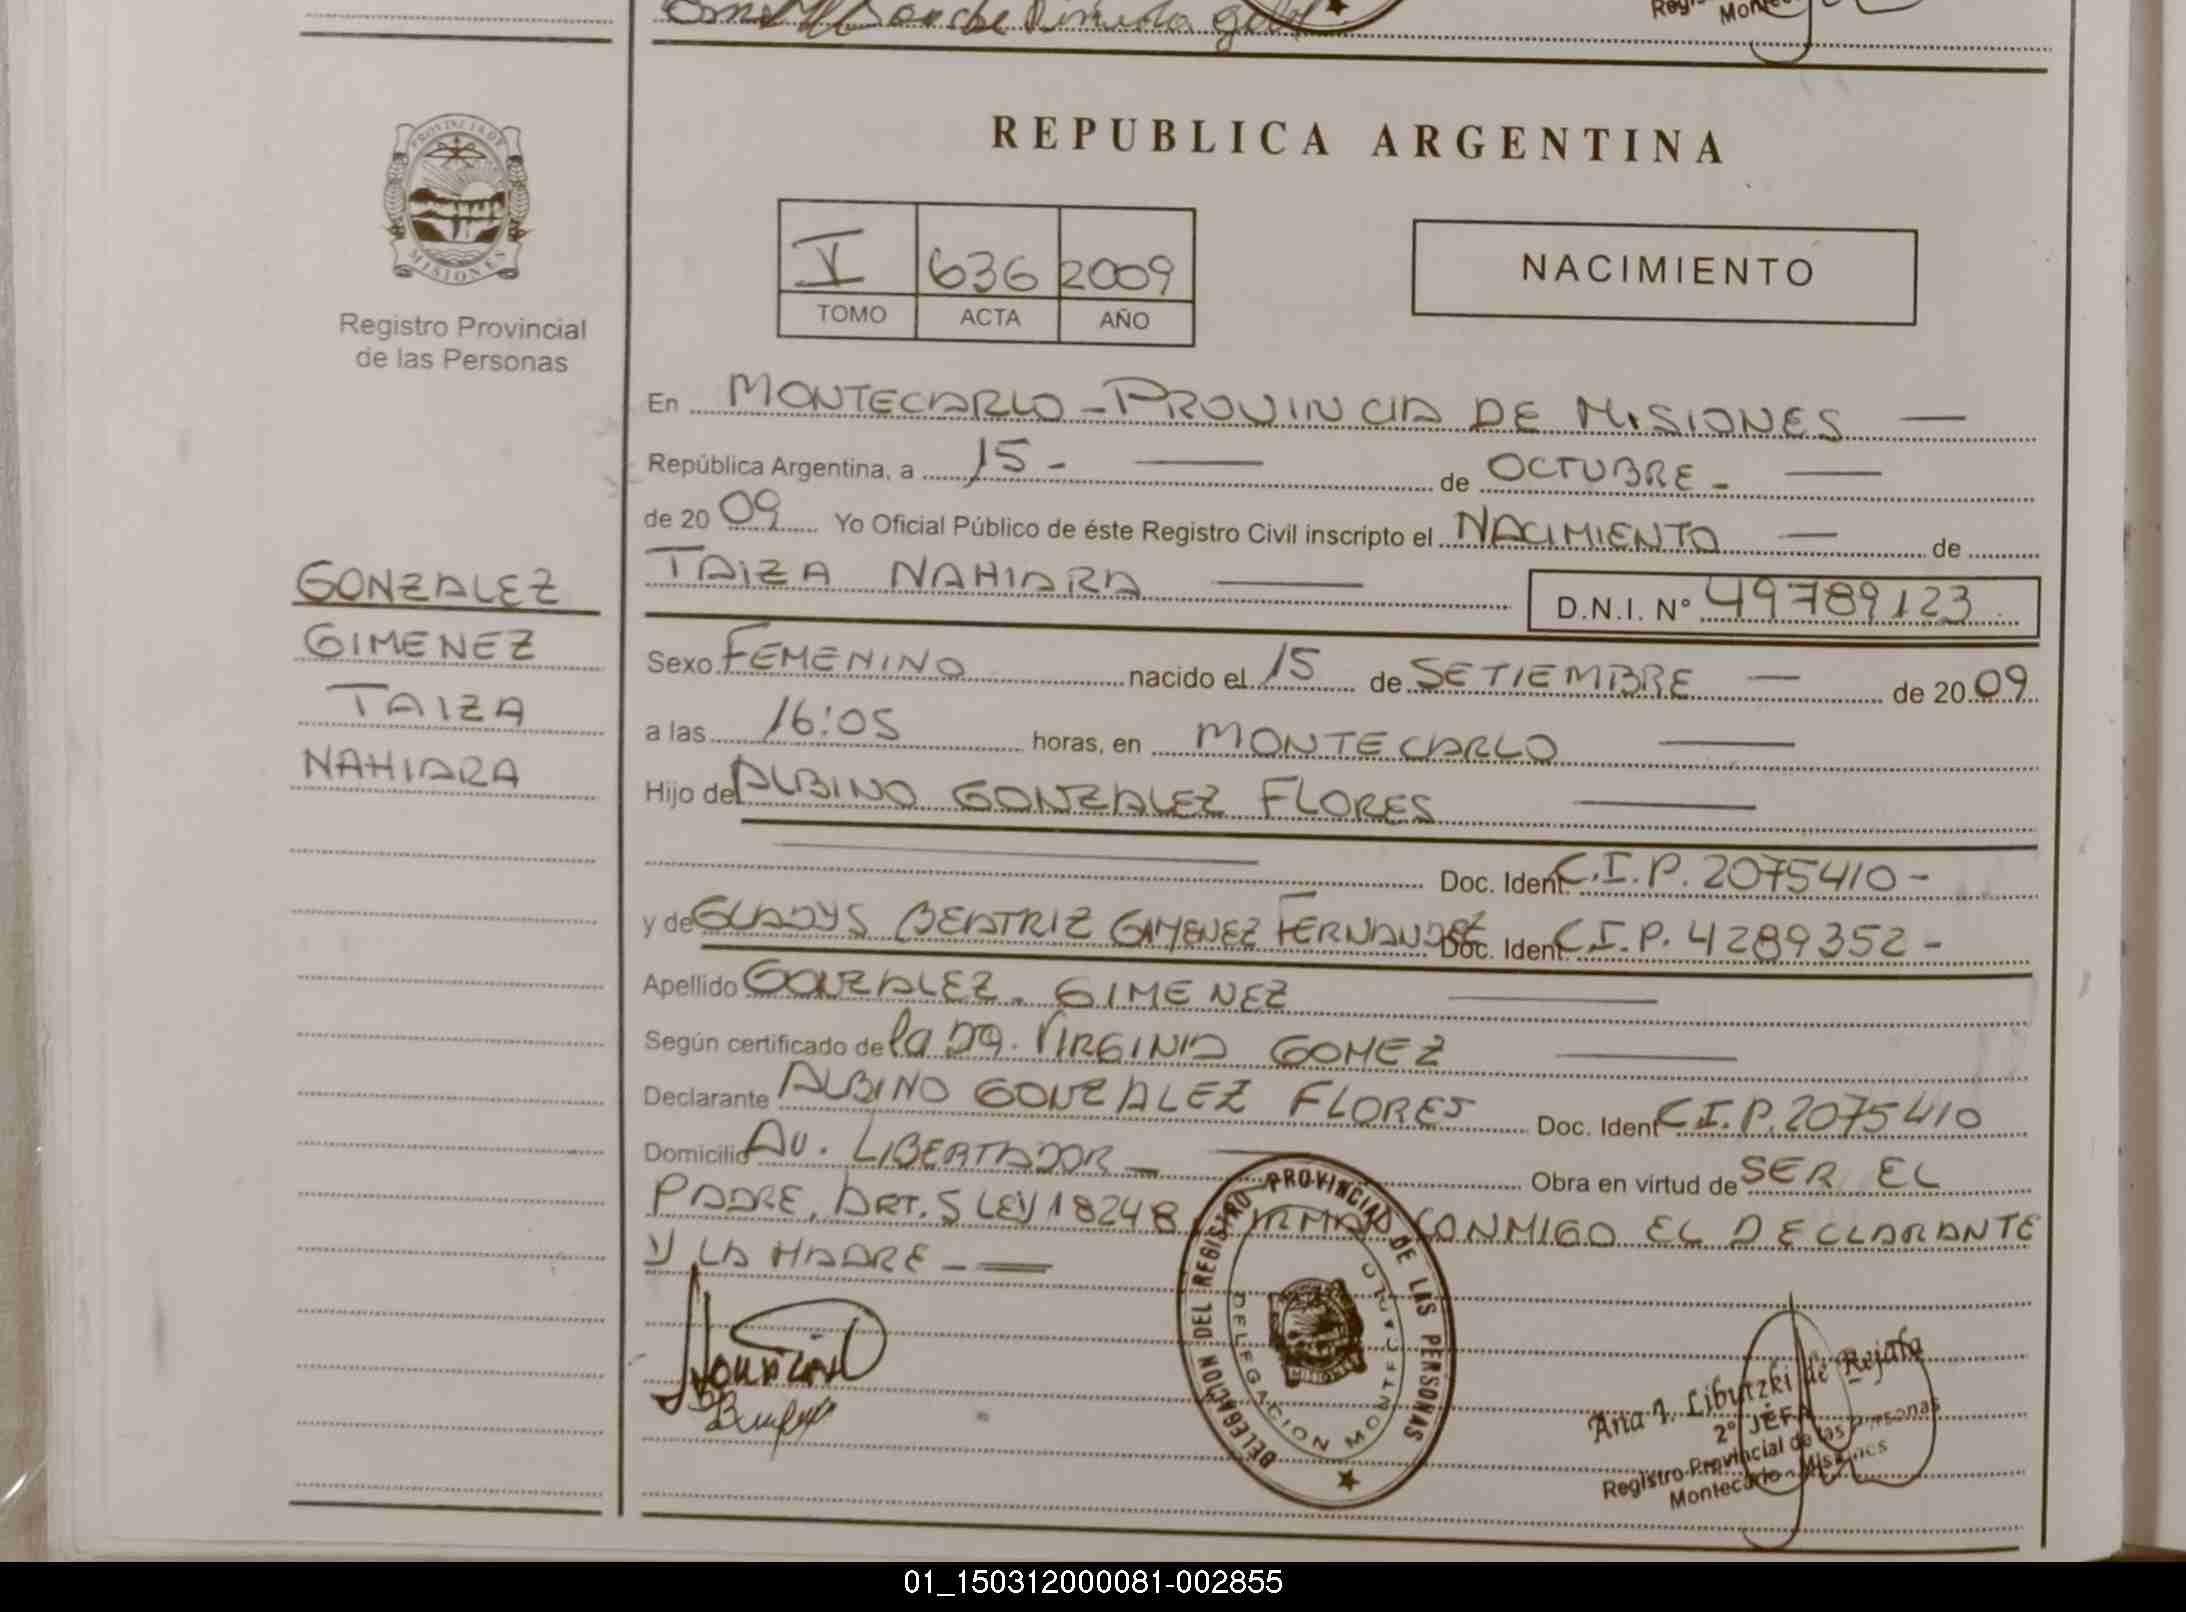 REPUBLICA ARGENTINA
PROVINCIA DE
MISIONES
Registro Provincial
de las Personas
V 636 2009
TOMO ACTA AÑO
NACIMIENTO
En MONTECARLO - PROVINCIA DE MISIONES —
República Argentina, a 15 - — de OCTUBRE - —
de 20 09 Yo Oficial Público de éste Registro Civil inscripto el NACIMIENTO — de
TAIZA NAHIARA — D.N.I. N° 49789123
GONZALEZ
GIMENEZ
TAIZA
NAHIARA
Sexo FEMENINO nacido el 15 de SETIEMBRE — de 20 09
a las 16:05 horas, en MONTECARLO —
Hijo de ALBINO GONZALEZ FLORES —
— Doc. Ident. C.I.P. 2075410 -
y de GLADYS BEATRIZ GIMENEZ FERNANDEZ Doc. Ident. C.I.P. 4289352 -
Apellido GONZALEZ - GIMENEZ —
Según certificado de la DRA. VIRGINIA GOMEZ —
Declarante ALBINO GONZALEZ FLORES Doc. Ident C.I.P. 2075410
Domicilio AV. LIBERTADOR - — Obra en virtud de SER EL
PADRE, ART. 5 LEY 18248, FIRMAN CONMIGO EL DECLARANTE
Y LA MADRE - —
DELEGACION DEL REGISTRO PROVINCIAL DE LAS PERSONAS
DELEGACION MONTECARLO
MISIONES
Ana I. Libutzki de Rejala
2° JEFA
Registro Provincial de las Personas
Montecarlo - Misiones
01_150312000081-002855